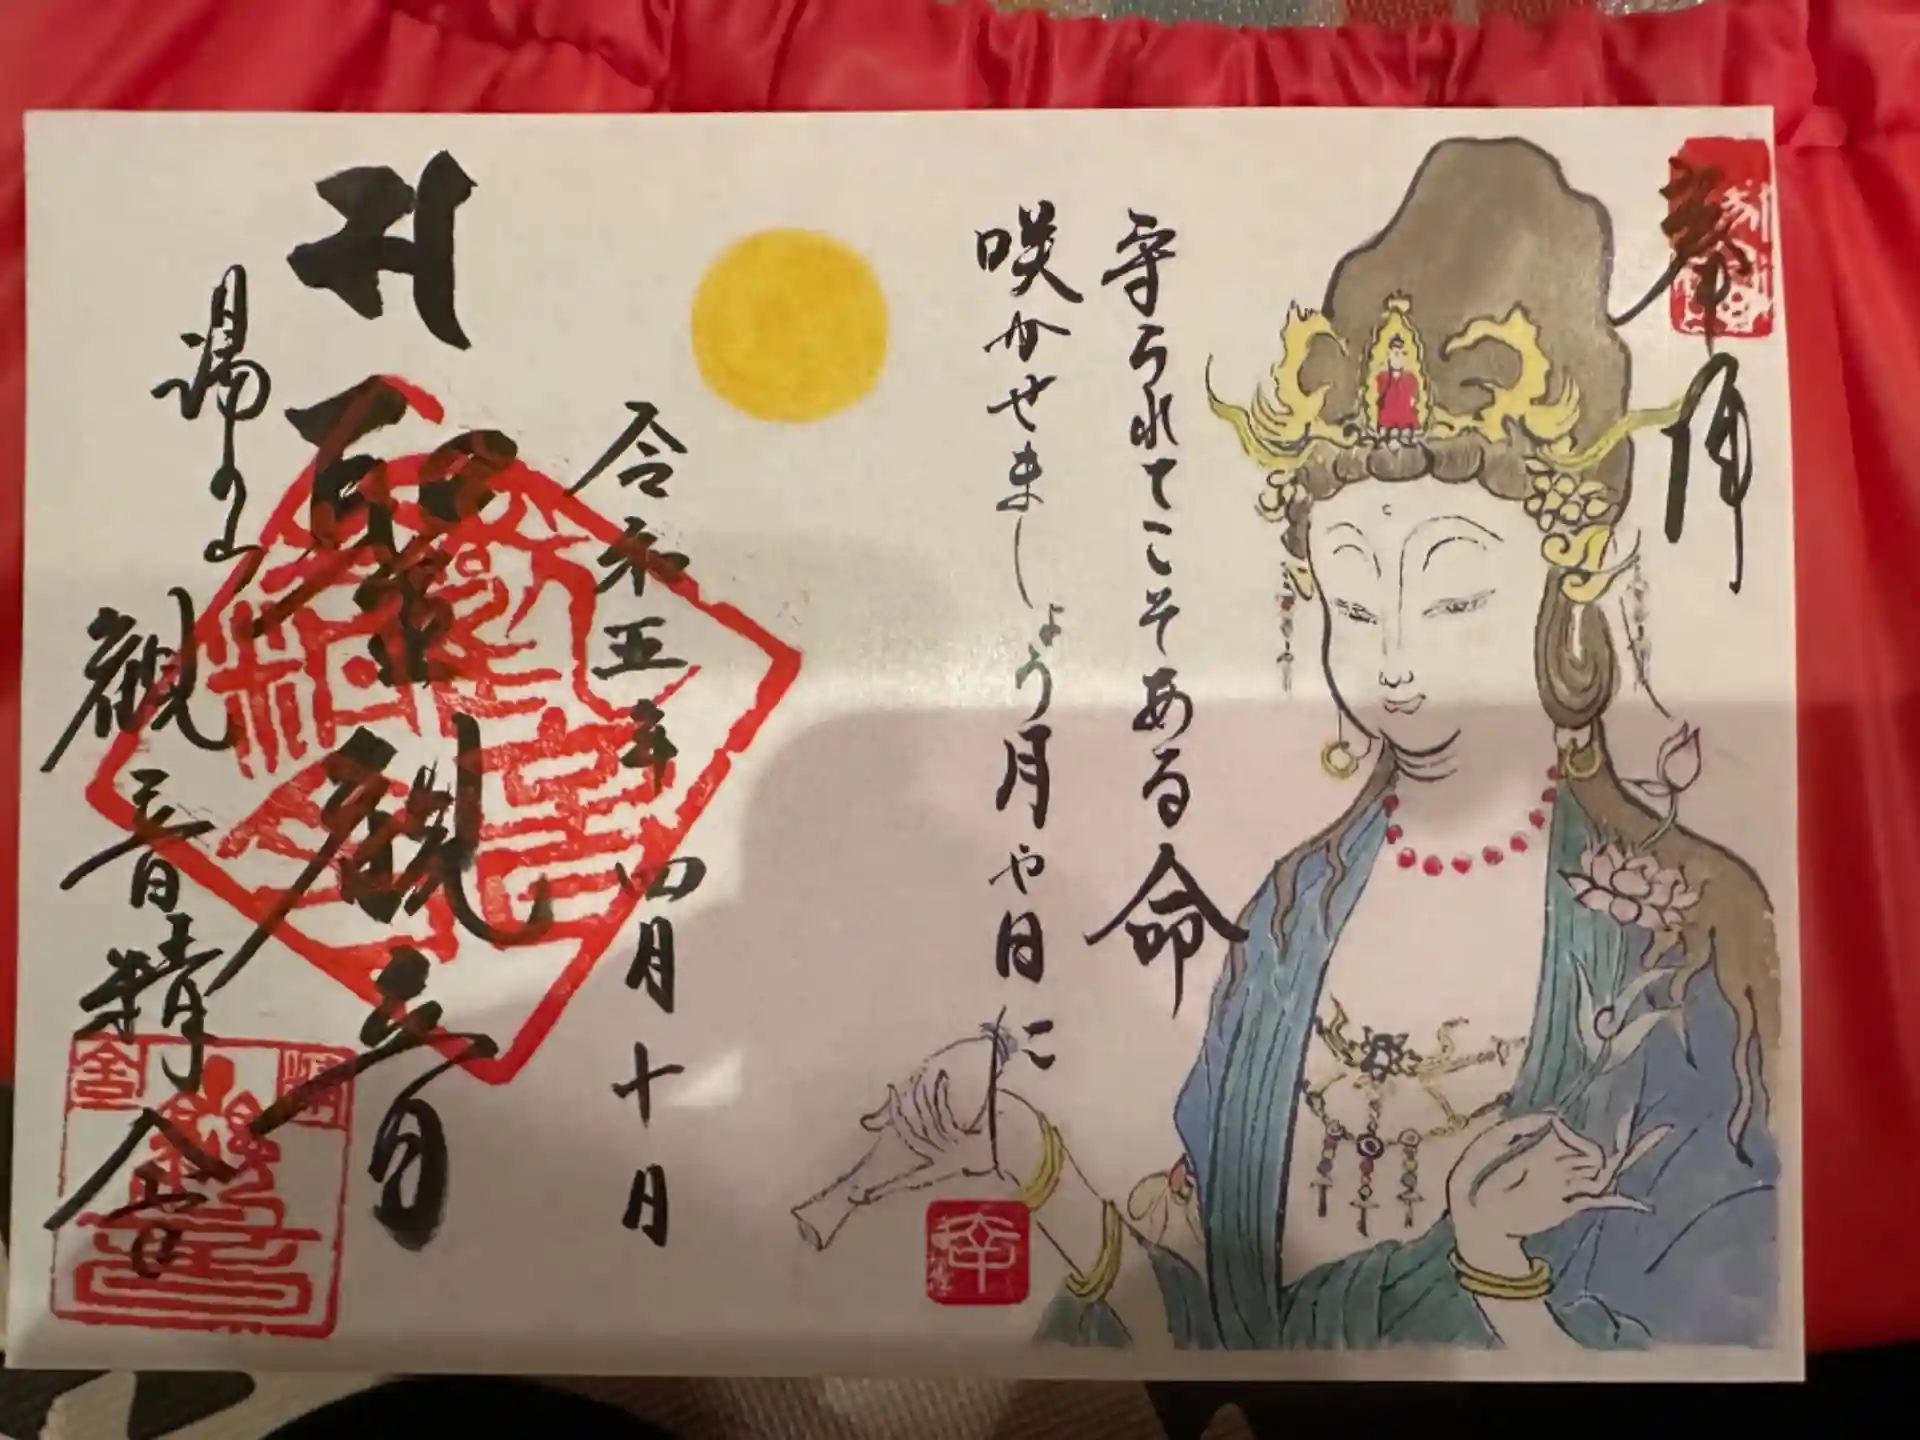 奉拝
守られてこそある命
咲かせましょう月や日に
令和五年四月十日
聖観音
湯の山
観音精舎
幸